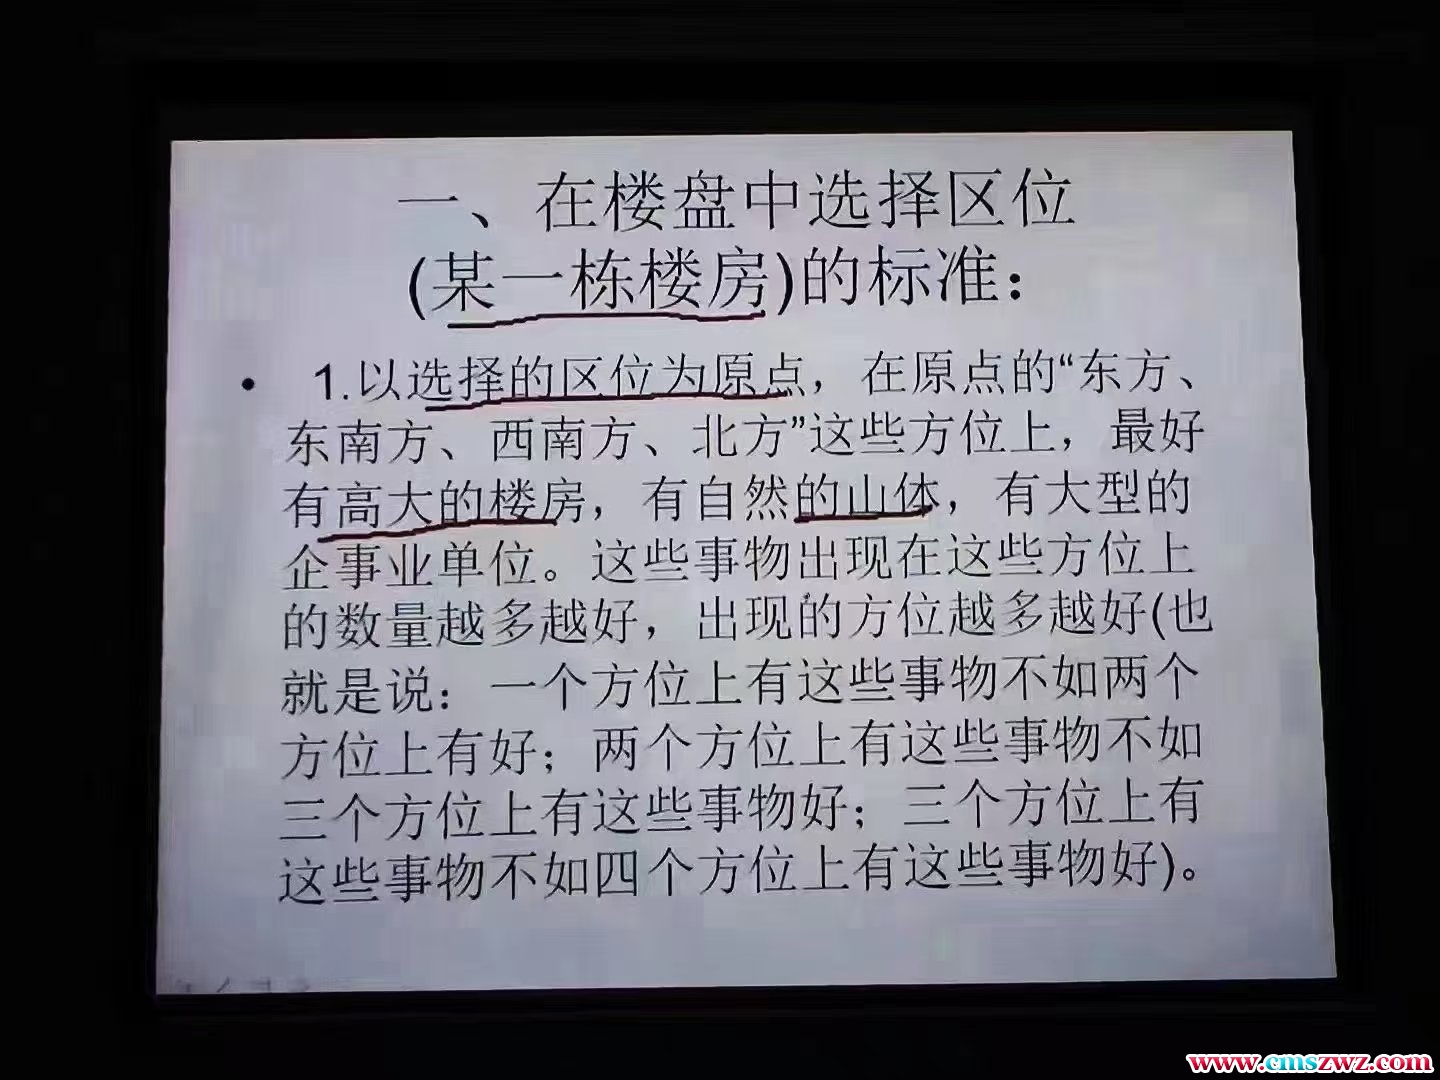 一、在楼盘中选择区位
(某一栋楼房)的标准：
• 1.以选择的区位为原点，在原点的“东方、
东南方、西南方、北方”这些方位上，最好
有高大的楼房，有自然的山体，有大型的
企事业单位。这些事物出现在这些方位上
的数量越多越好，出现的方位越多越好(也
就是说：一个方位上有这些事物不如两个
方位上有好；两个方位上有这些事物不如
三个方位上有这些事物好；三个方位上有
这些事物不如四个方位上有这些事物好)。
www.cmszwz.com